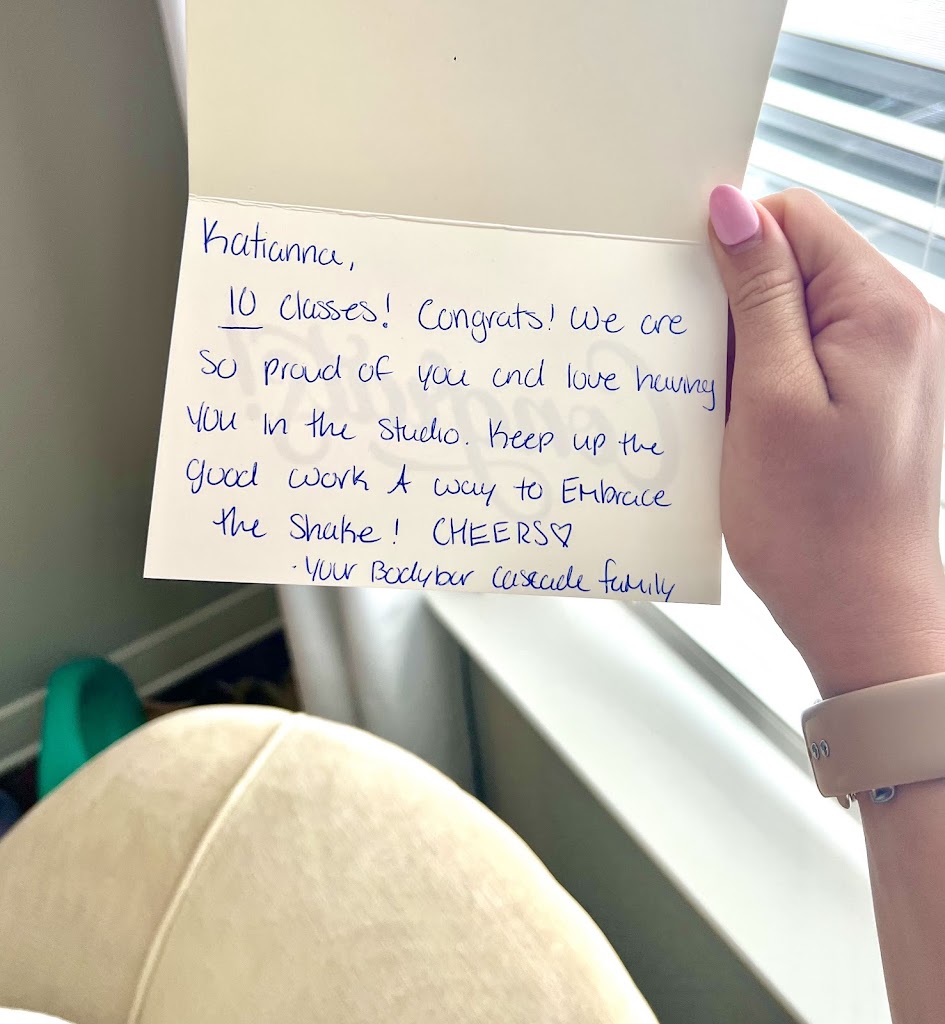 Katianna,
10 classes! Congrats! We are
so proud of you and love having
you in the studio. Keep up the
good work & way to Embrace
the Shake! CHEERS♡
·Your Bodybar Cascade family
Congrats!